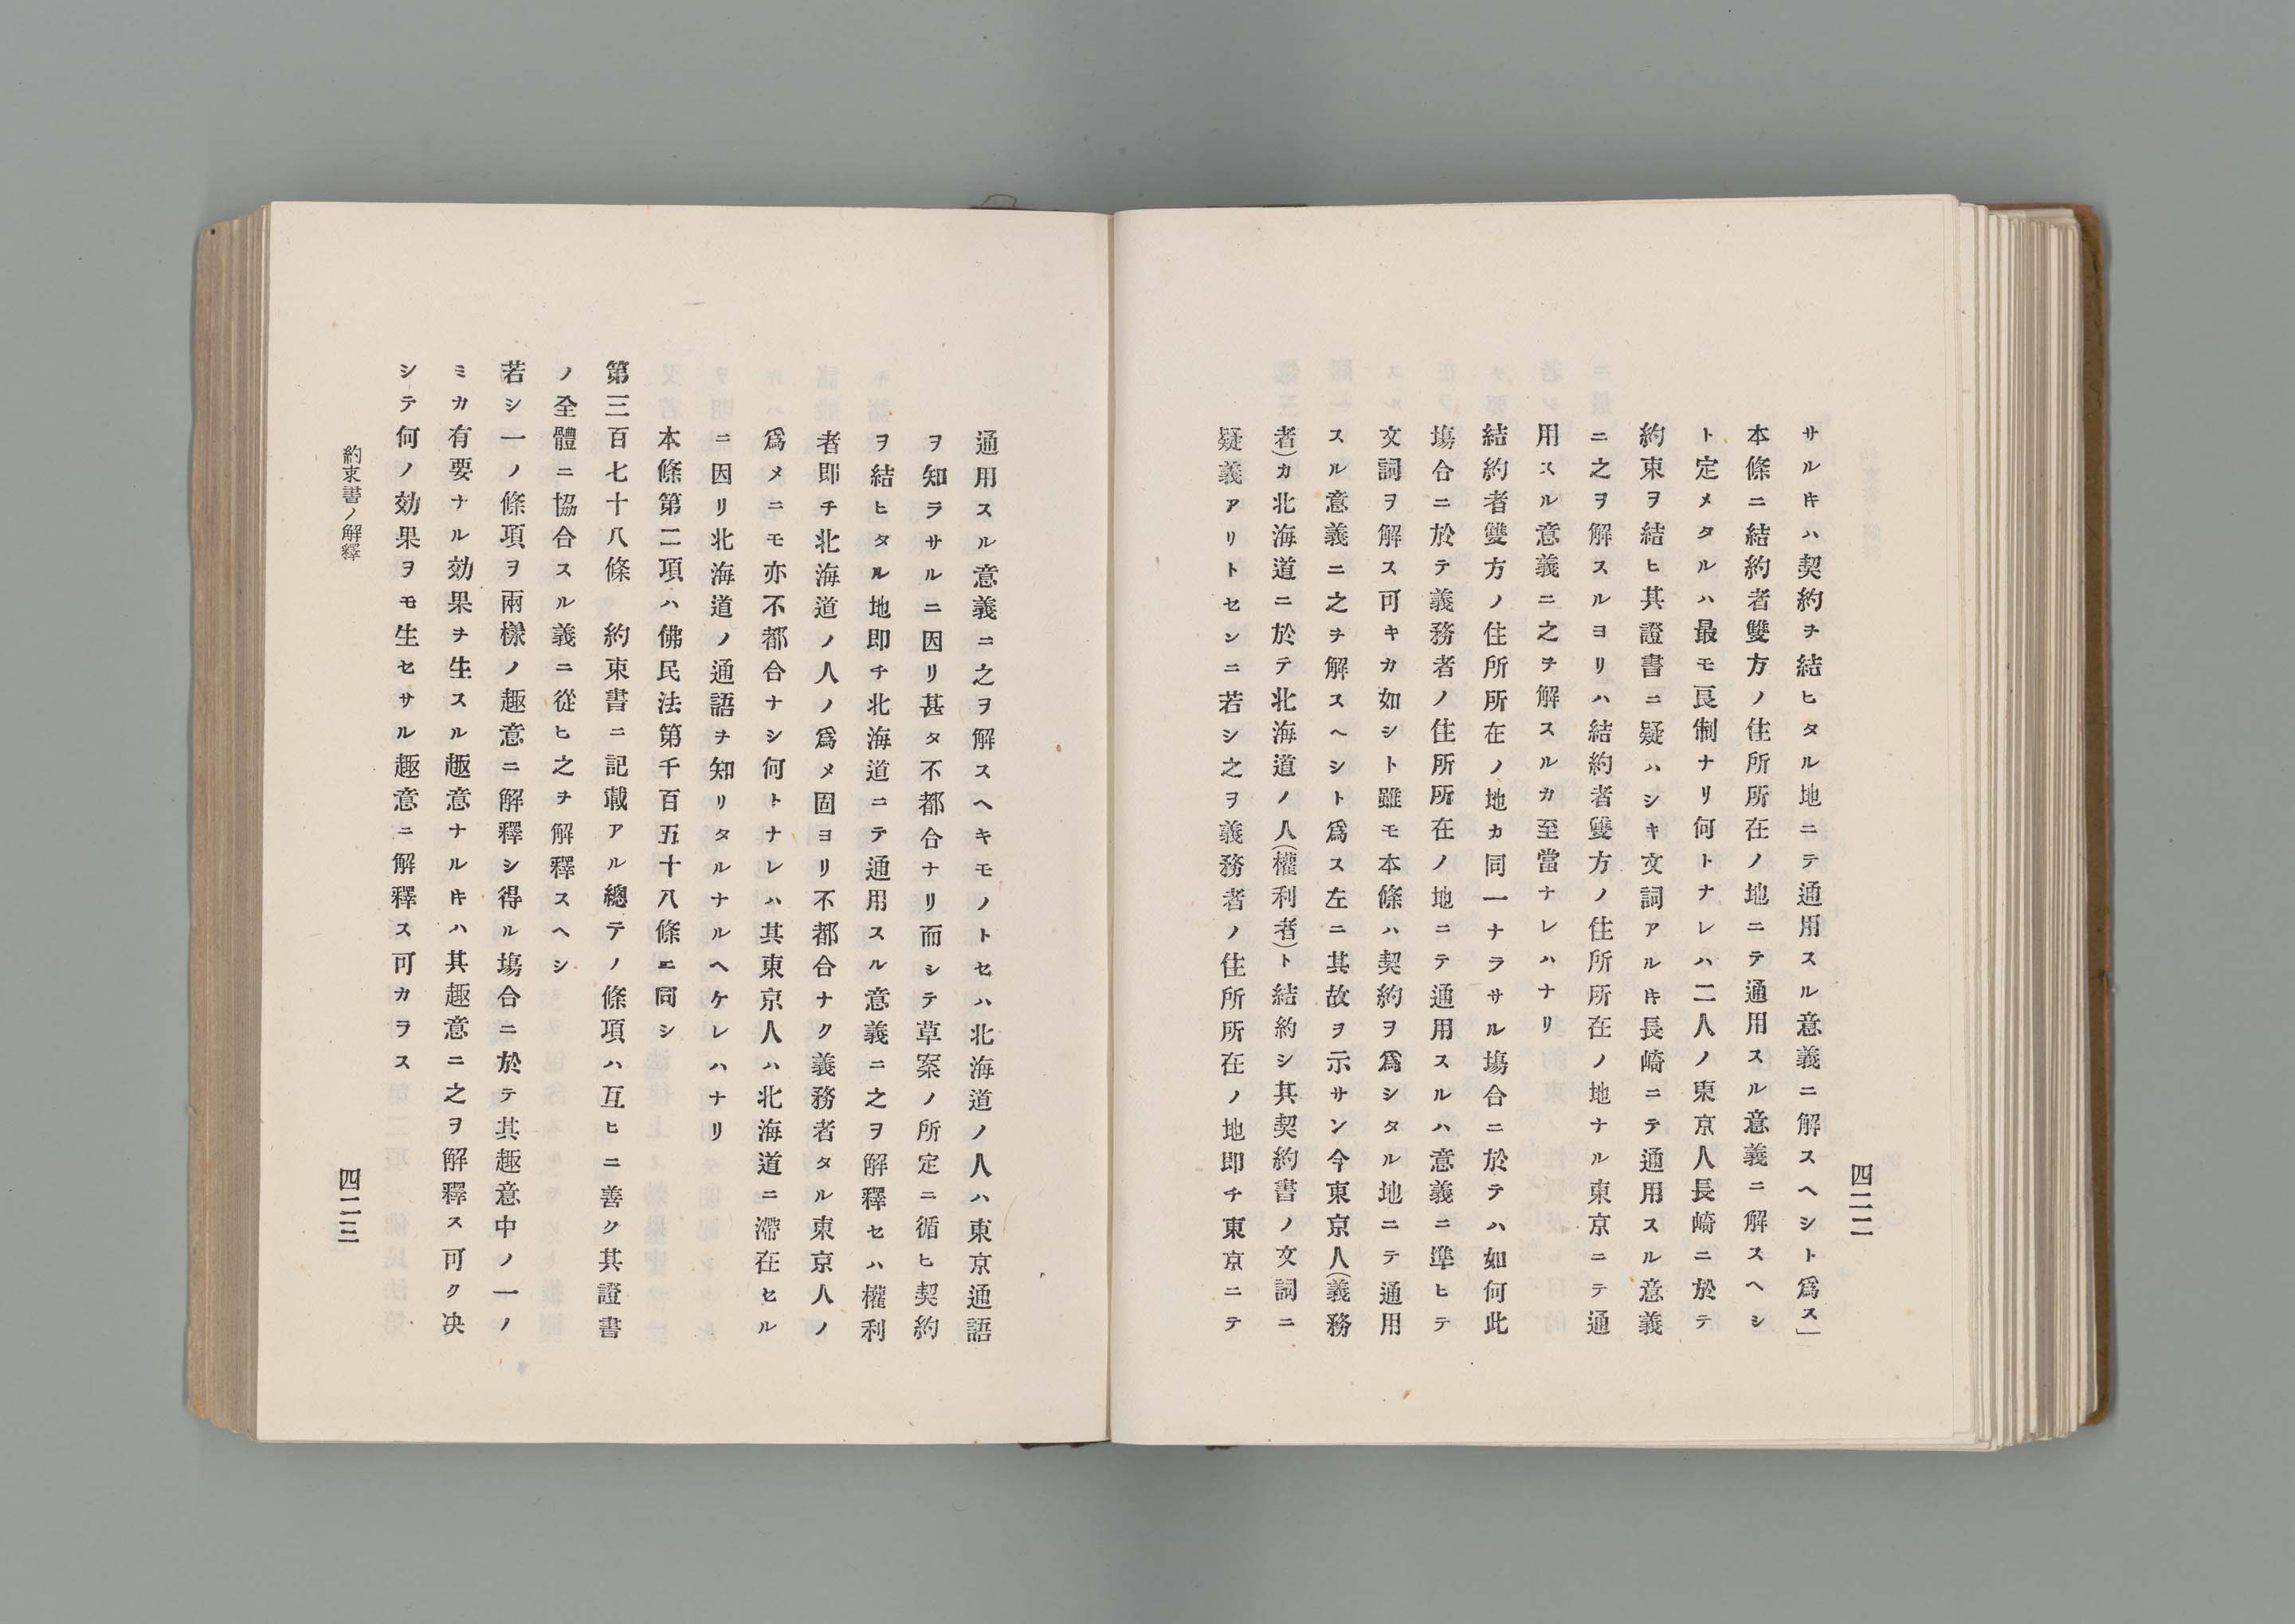 四二二
サルキハ契約ヲ結ヒタル地ニテ通用スル意義ニ解スヘシト爲ス」
本條ニ結約者雙方ノ住所所在ノ地ニテ通用スル意義ニ解スヘシ
ト定メタルハ最モ良制ナリ何トナレハ二人ノ東京人長崎ニ於テ
約束ヲ結ヒ其證書ニ疑ハシキ文詞アルキ長崎ニテ通用スル意義
ニ之ヲ解スルヨリハ結約者雙方ノ住所所在ノ地ナル東京ニテ通
用スル意義ニ之ヲ解スルカ至當ナレハナリ
結約者雙方ノ住所所在ノ地カ同一ナラサル塲合ニ於テハ如何此
塲合ニ於テ義務者ノ住所所在ノ地ニテ通用スルハ意義ニ準ヒテ
文詞ヲ解ス可キカ如シト雖モ本條ハ契約ヲ爲シタル地ニテ通用
スル意義ニ之ヲ解スヘシト爲ス左ニ其故ヲ示サン今東京人(義務
者)カ北海道ニ於テ北海道ノ人(權利者)ト結約シ其契約書ノ文詞ニ
疑義アリトセシニ若シ之ヲ義務者ノ住所所在ノ地即チ東京ニテ
通用スル意義ニ之ヲ解スヘキモノトセハ北海道ノ人ハ東京通語
ヲ知ラサルニ因リ甚タ不都合ナリ而シテ草案ノ所定ニ循ヒ契約
ヲ結ヒタル地即チ北海道ニテ通用スル意義ニ之ヲ解釋セハ權利
者即チ北海道ノ人ノ爲メ固ヨリ不都合ナク義務者タル東京人ノ
爲メニモ亦不都合ナシ何トナレハ其東京人ハ北海道ニ滯在セル
ニ因リ北海道ノ通語ヲ知リタルナルヘケレハナリ
本條第二項ハ佛民法第千百五十八條ニ同シ
第三百七十八條 約束書ニ記載アル總テノ條項ハ互ヒニ善ク其證書
ノ全體ニ協合スル義ニ從ヒ之ヲ解釋スヘシ
若シ一ノ條項ヲ兩樣ノ趣意ニ解釋シ得ル塲合ニ於テ其趣意中ノ一ノ
ミカ有要ナル効果ヲ生スル趣意ナルキハ其趣意ニ之ヲ解釋ス可ク决
シテ何ノ効果ヲモ生セサル趣意ニ解釋ス可カラス
約束書ノ解釋
四二三